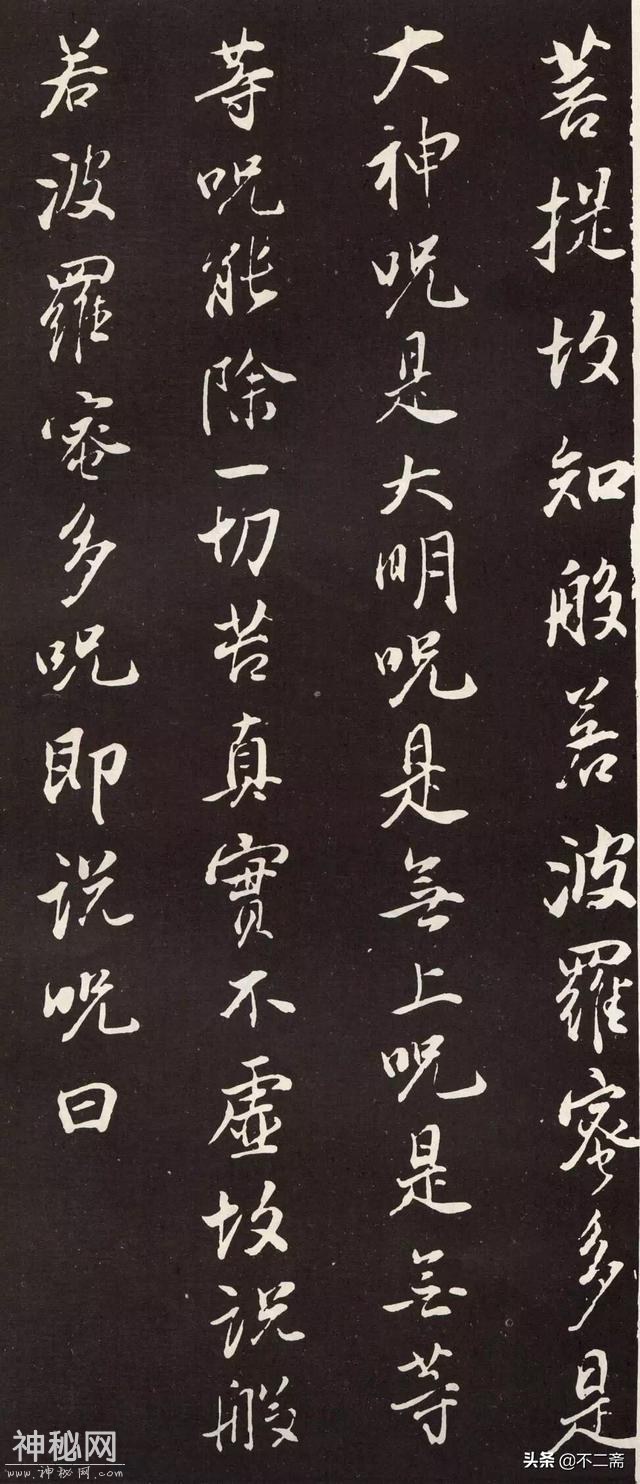 菩提故知般若波羅蜜多是
大神咒是大明咒是無上咒是無等
等咒能除一切苦真實不虛故說般
若波羅蜜多咒即說咒曰
神秘网
www.神秘网.com
头条 @不二斋